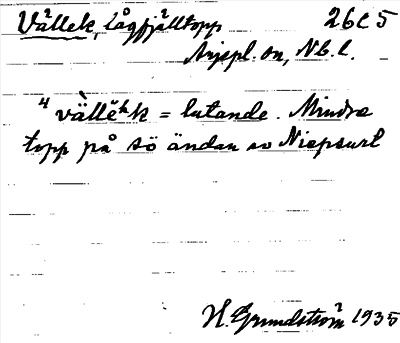 Vällek, lågfjälltopp 26C5
Arjepl. sn, Nb. l.
4 vällĕkk = lutande. Mindre
topp på sö ändan av Niepsurt
H. Grundström 1935